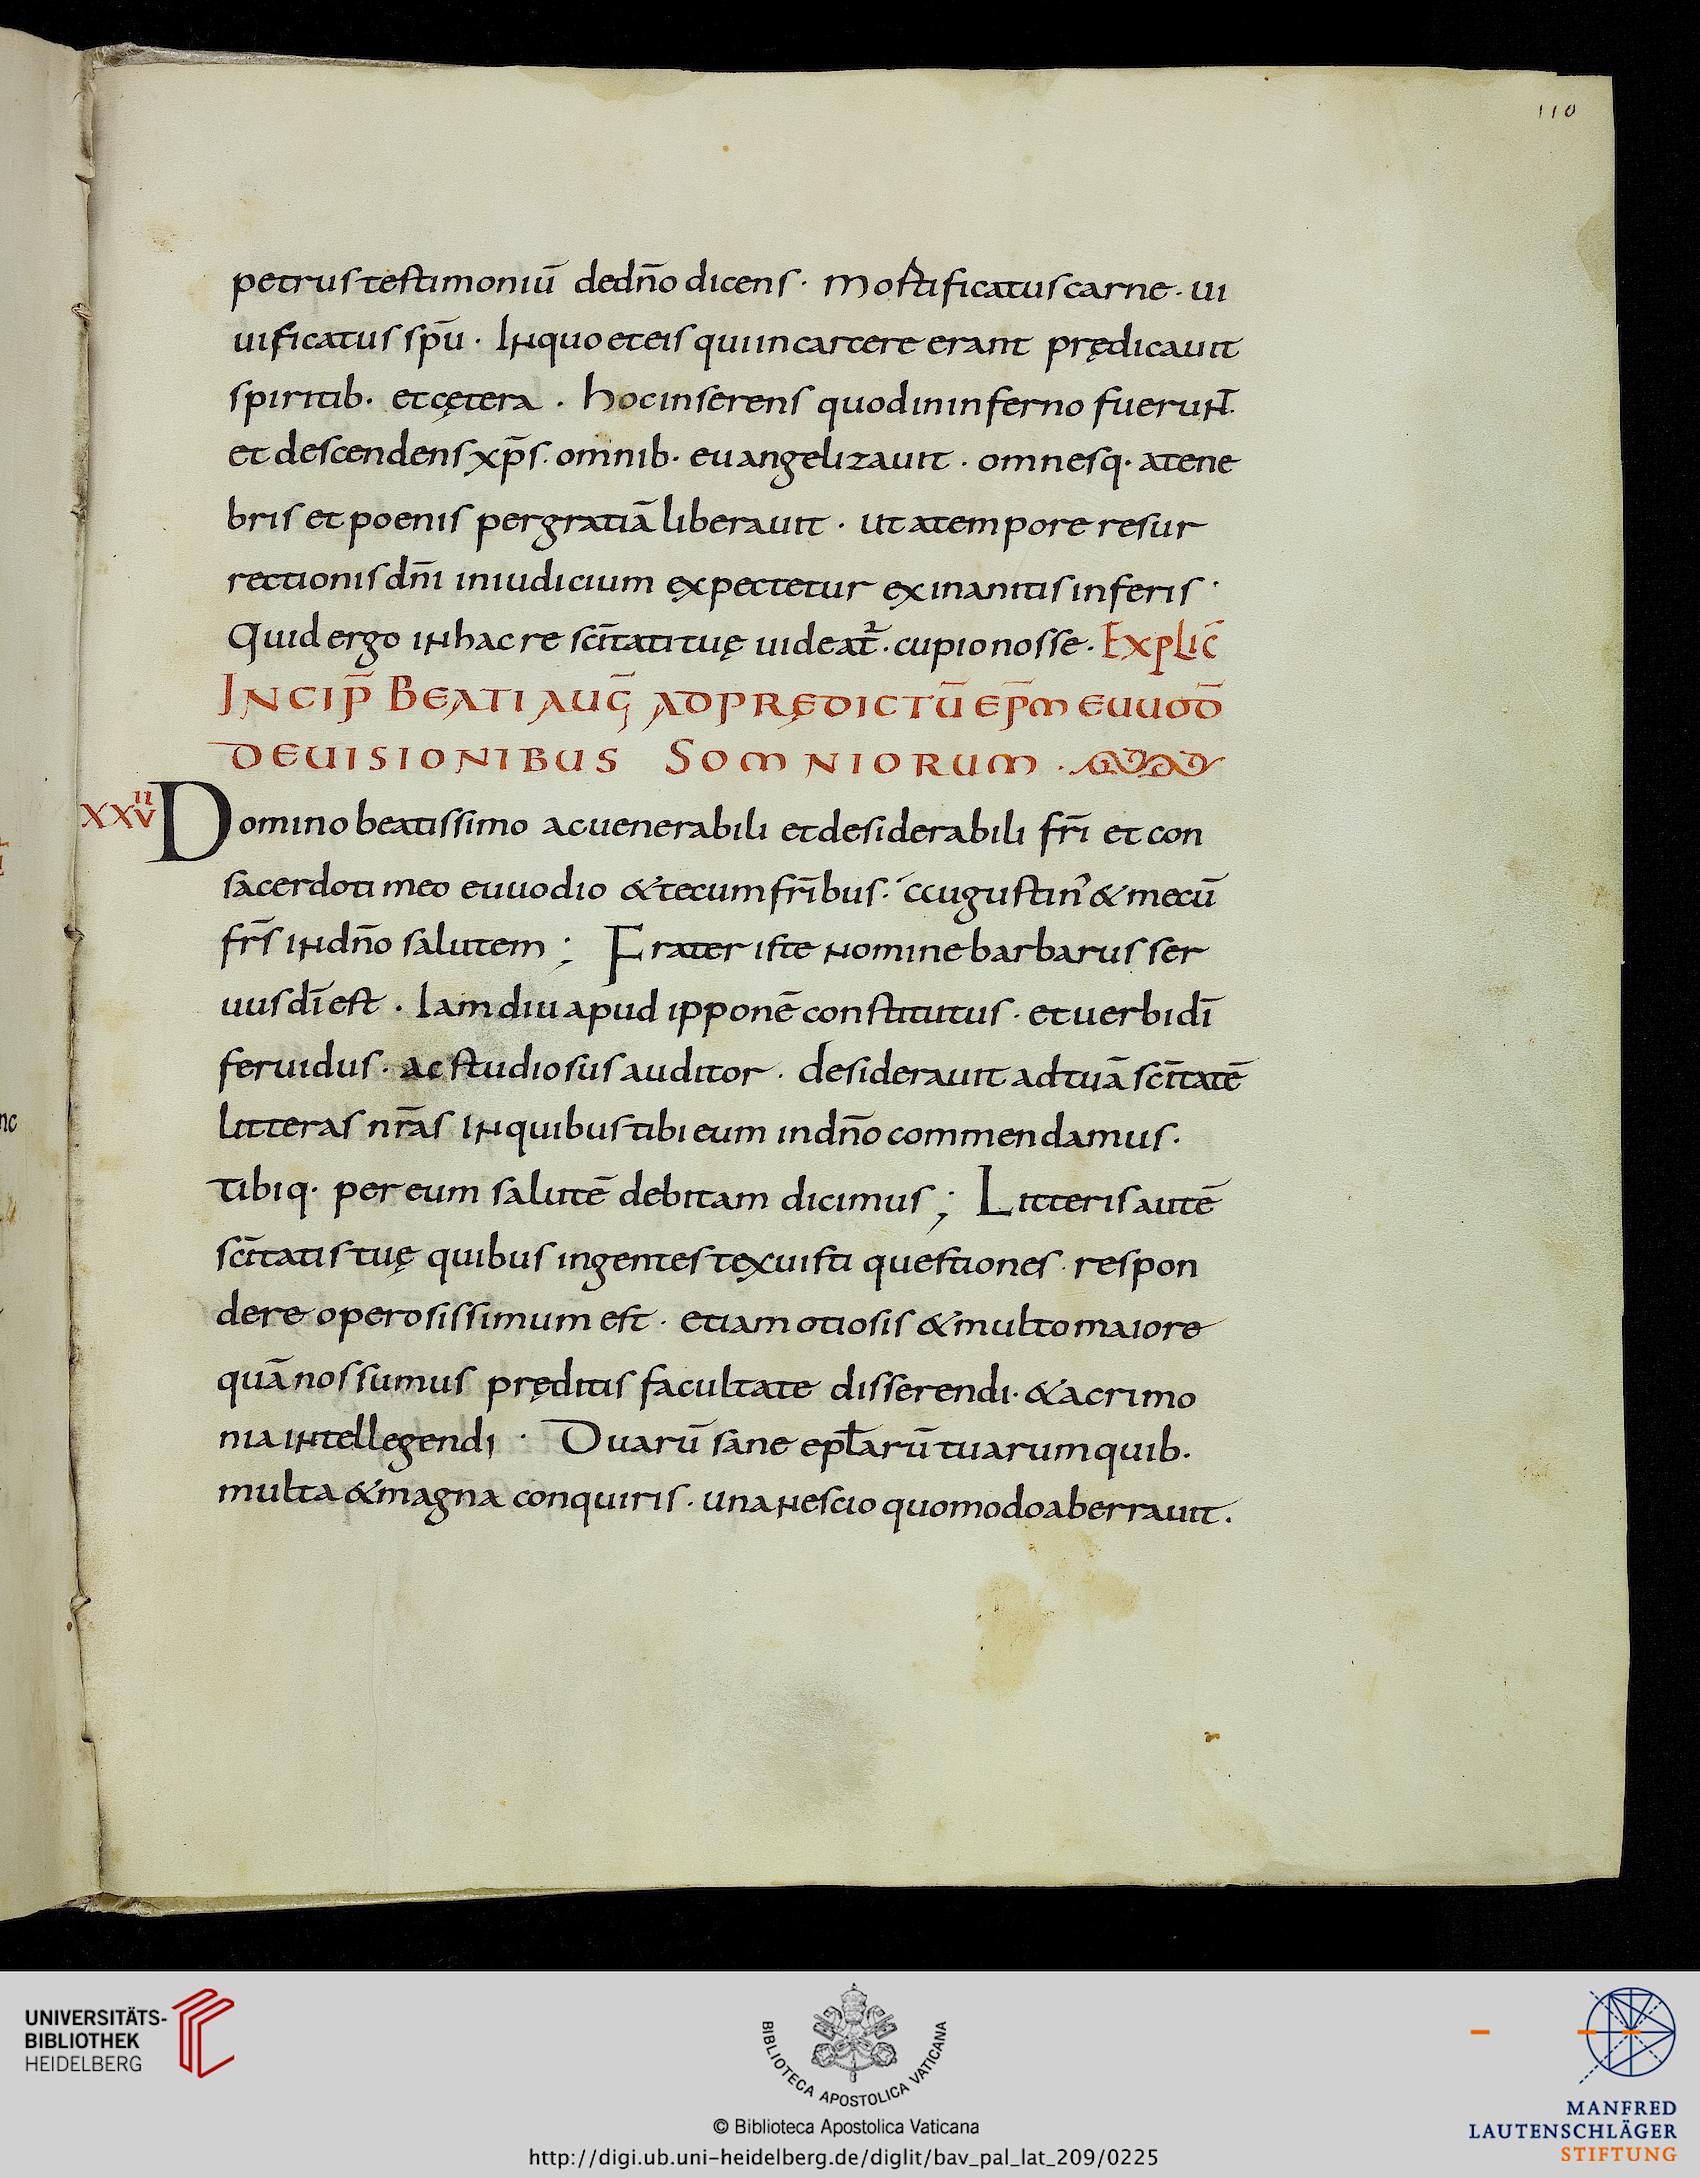 110
petrus testimoniū de dn̄o dicens · Mortificatus carne · ui
uificatus sp̄u · In quo et eis qui in carcere erant prędicauit
spiritib · et cętera · hoc inserens quod in inferno fuerunt̄ ·
et descendens xp̄s · omnib · euangelizauit · omnesq · a tene
bris et poenis per gratiā liberauit · ut a tempore resur
rectionis dn̄i in iudicium expectetur exinanitis inferis ·
Quid ergo in hac re sc̄itati tuę uideat̄ · cupio nosse · Explic̄
INCIP̄ BEATI AUḠ AD PRĘDICTŪ EP̄M EUUOD̄
DE UISIONIBUS SOMNIORUM ·
XXVII Domino beatissimo ac uenerabili et desiderabili fr̄i et con
sacerdoti meo euuodio & tecum fr̄ibus · augustin' & mecū
fr̄s in dn̄o salutem ; Frater iste nomine barbarus ser
uus dī est · Iam diu apud ipponē constitutus · et uerbi dī
feruidus · ac studiosus auditor · desiderauit ad tuā sc̄itatē
litteras nr̄as in quibus tibi eum in dn̄o commendamus ·
tibiq · per eum salutē debitam dicimus ; Litteris autē
sc̄itatis tuę quibus ingentes texuisti questiones · respon
dere operosissimum est · etiam otiosis & multo maiore
quā nos sumus pręditis facultate disserendi · & acrimo
nia intellegendi · Duarū sane epl̄arū tuarum quib ·
multa & magna conquiris · una nescio quomodo aberrauit ·
nc
UNIVERSITÄTS-
BIBLIOTHEK
HEIDELBERG
BIBLIOTECA APOSTOLICA VATICANA
© Biblioteca Apostolica Vaticana
http://digi.ub.uni-heidelberg.de/diglit/bav_pal_lat_209/0225
MANFRED
LAUTENSCHLÄGER
STIFTUNG